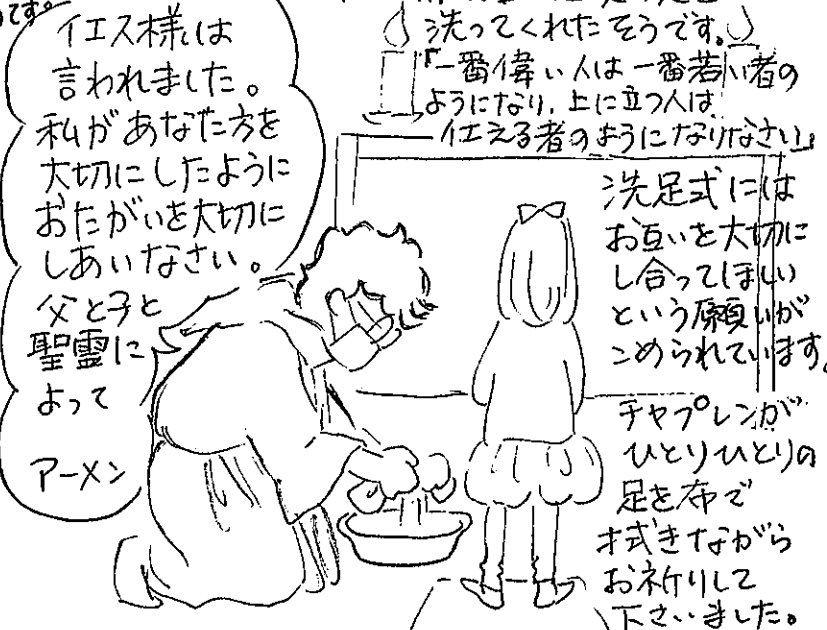 です。
イエス様は
言われました。
私があなた方を
大切にしたように
おたがいを大切に
しあいなさい。
父と子と
聖霊に
よって
アーメン
洗ってくれたそうです。
『一番偉い人は一番若い者の
ようになり、上に立つ人は
仕える者のようになりなさい』
洗足式には
お互いを大切に
し合ってほしい
という願いが
こめられています。
チャプレンが
ひとりひとりの
足を布で
拭きながら
お祈りして
下さいました。